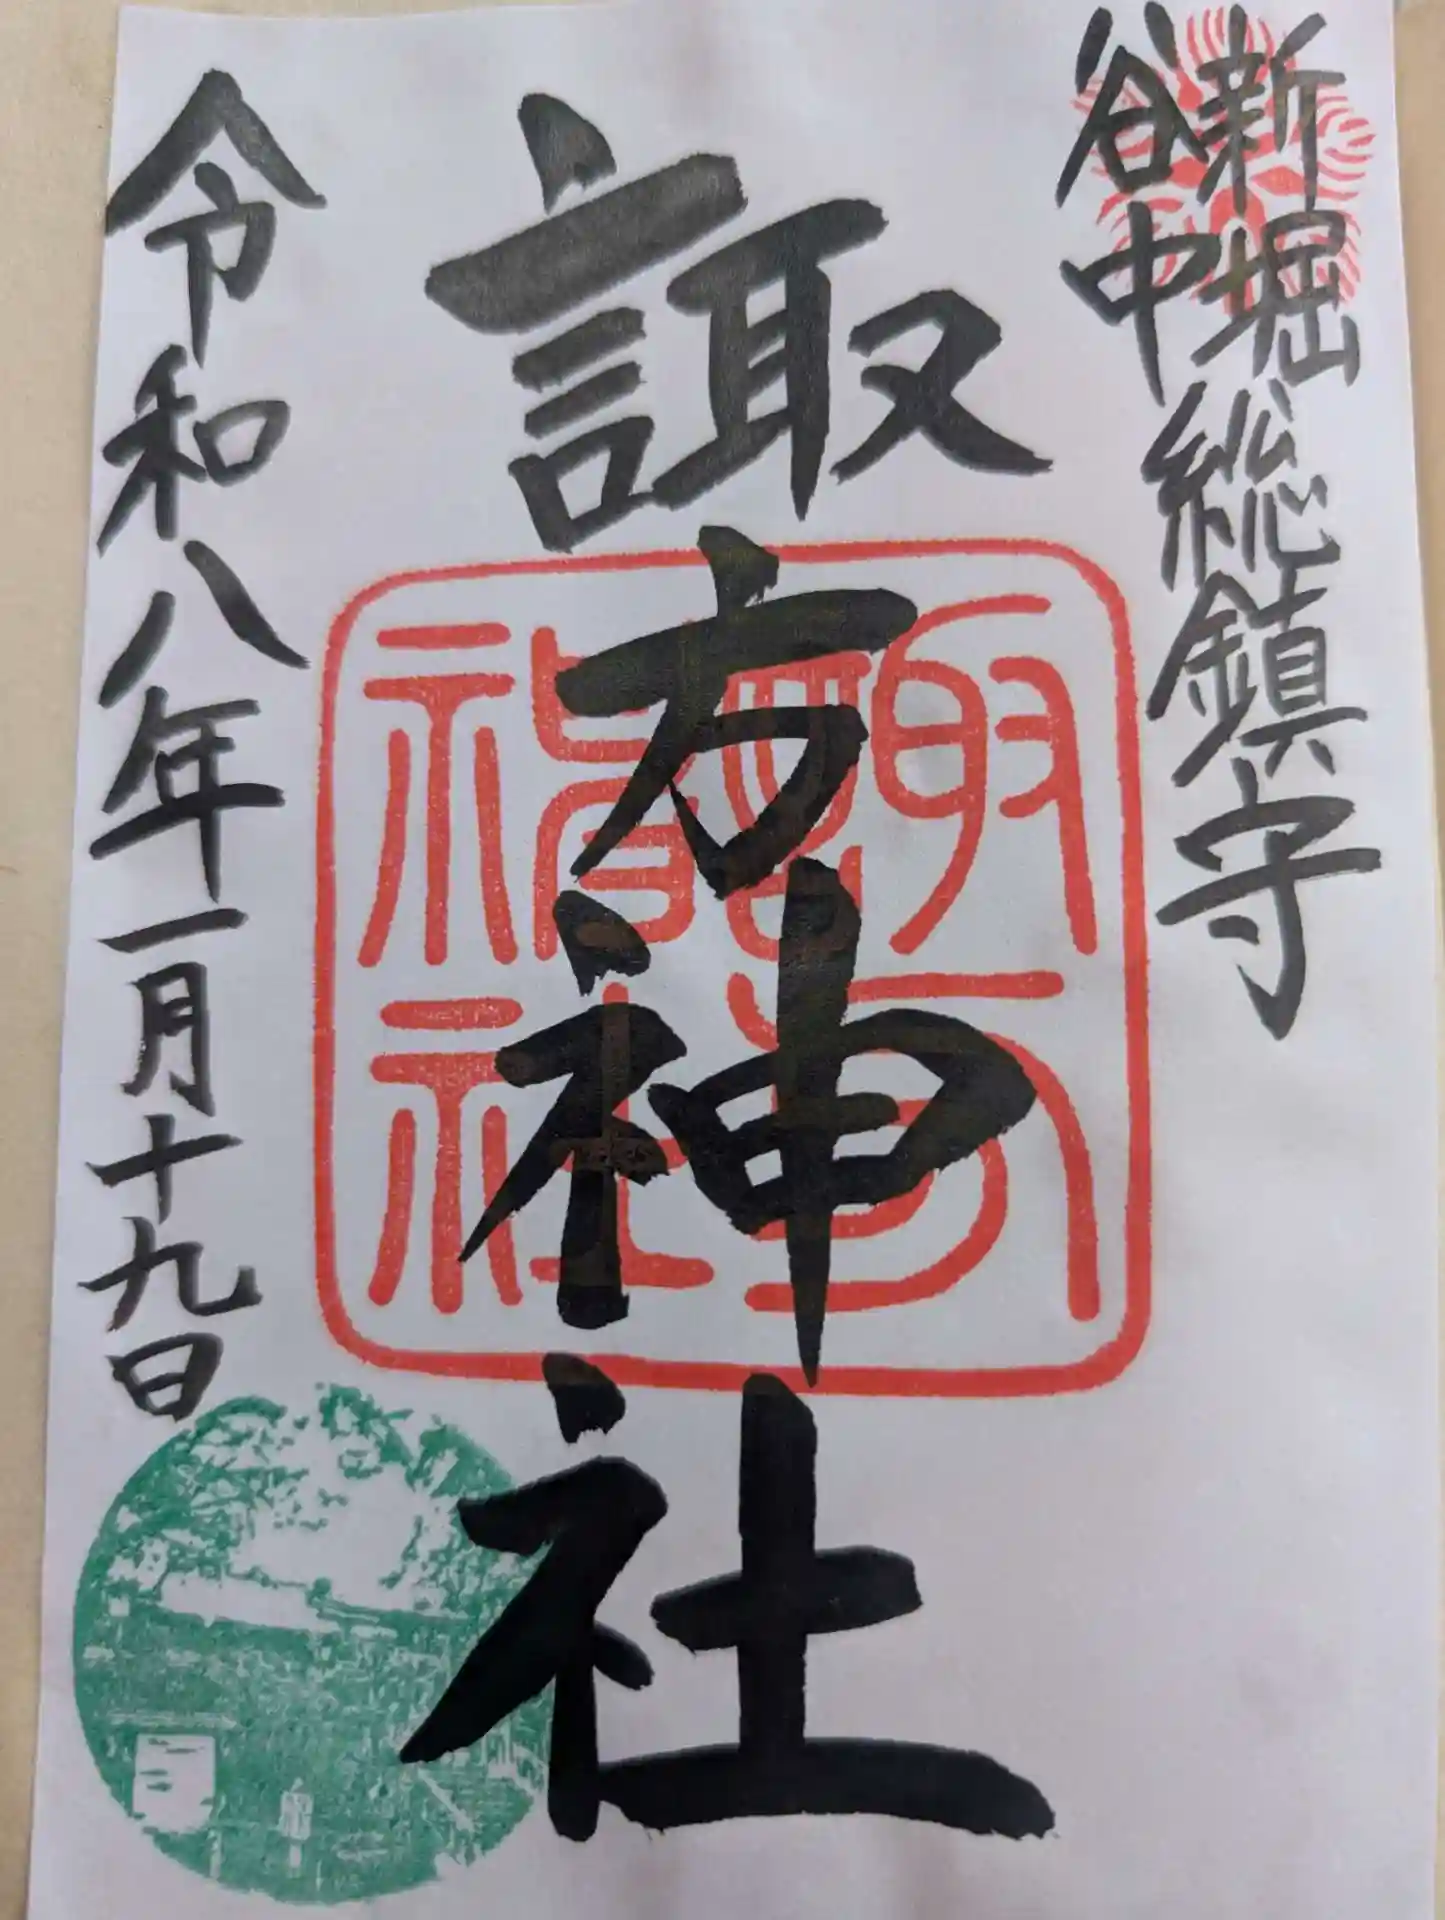 新堀
谷中
総鎮守
諏方神社
諏方
神社
令和八年一月十九日